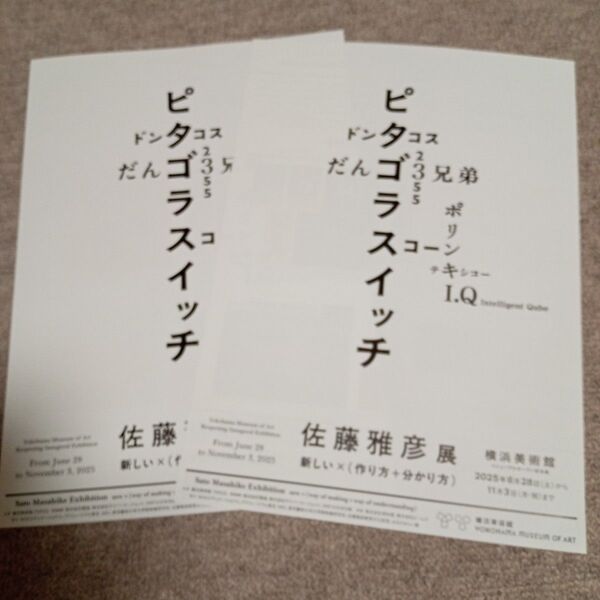 ピタゴラスイッチ
ドンタコス
だん3兄
2355
コ
Yokohama Museum of Art
Reopening Inaugural Exhibition
From June 28
to November 3, 2025
佐藤
新しい×(作
Sato Masahiko Exhibition
ピタゴラスイッチ
ドンタコス
だんご3兄弟
2355
ポリンキー
スコーン
テキシコー
I.Q Intelligent Qube
Yokohama Museum of Art
Reopening Inaugural Exhibition
From June 28
to November 3, 2025
佐藤雅彦展
新しい×(作り方+分かり方)
横浜美術館
2025年6月28日(土)から
11月3日(月・祝)まで
Sato Masahiko Exhibition new × (way of making + way of understanding)
横浜美術館
YOKOHAMA MUSEUM OF ART